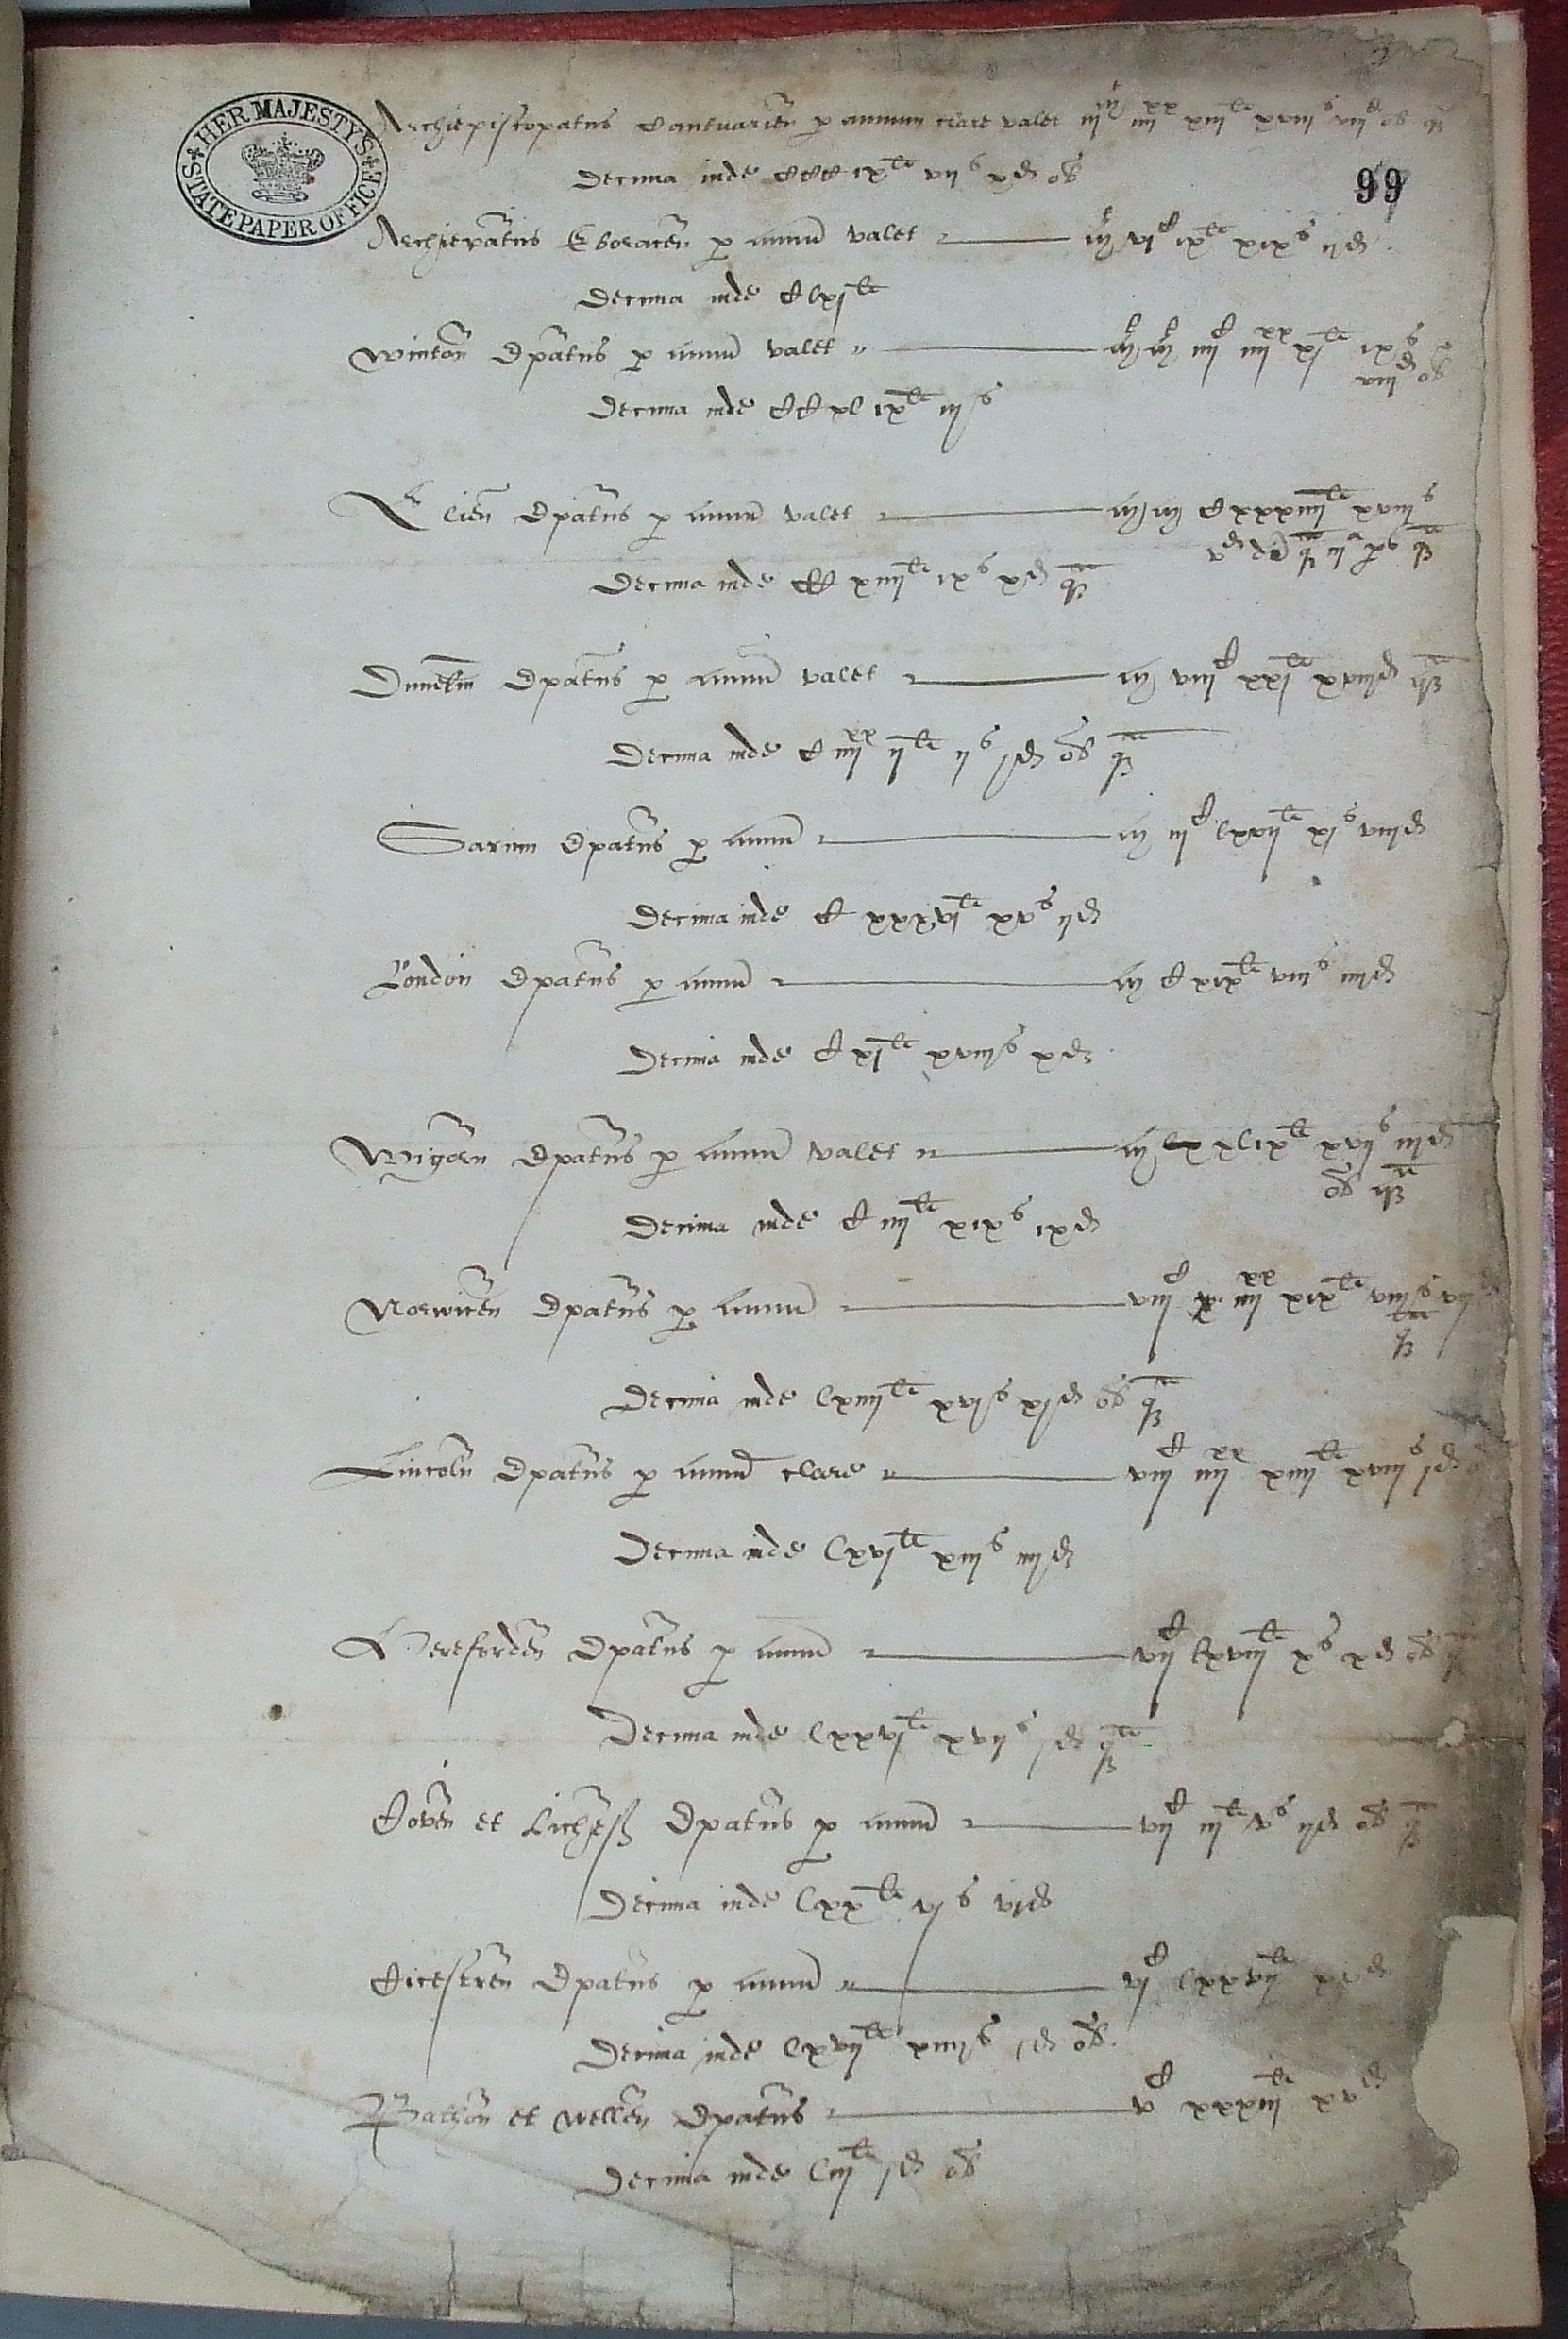 HER MAJESTY'S STATE PAPER OFFICE
Archiepiscopatus Cantuarien p annum clare valet iij^M iiij^xx xiij^li xviij^s vij^d ob q
99
Decima inde CCC ix^li vij^s x^d ob
Archiepatus Eboracen p annu valet M vj^C ix^li xix^s ij^d
Decima inde C lxj^li
Winton Epatus p annu valet M M iiij^C iiij^xx xj^li ix^s
viij^d ob
Decima inde CC xl ix^li iij^s
Elien Epatus p annu valet M M C xxxiiij^li xviij^s
v^d
Decima inde CC xiij^li ix^s x^d q^a
Dunelm Epatus p annu valet M viij^C xxj^li xviij^d q^a
Decima inde C iiij^xx ij^li ij^s j^d ob q^a
Sarum Epatus p annu M iij^C lxvij^li xj^s viij^d
Decima inde C xxxvj^li xv^s ij^d
London Epatus p annu M C xix^li viij^s iiij^d
Decima inde C xj^li xviij^s x^d
Wigorn Epatus p annu valet M xlix^li xvij^s iij^d
ob q^a
Decima inde C iiij^li xix^s ix^d
Norwicen Epatus p annu viij^C iiij^xx xix^li viij^s vij^d
q^a
Decima inde lxiiij^li xvj^s xj^d ob q^a
Lincoln Epatus p annu clare viij^C iiij^xx xiiij^li xviij^s j^d
Decima inde lxvj^li xiij^s iiij^d
Hereforden Epatus p annu vij^C lxviij^li x^s x^d ob
Decima inde lxxvj^li xvij^s j^d q^a
Coven et Lichef Epatus p annu vij^C iij^li v^s ij^d ob q^a
Decima inde lxx^li vj^s vj^d
Cicestren Epatus p annu vj^C lxxvij^li
Decima inde lxvij^li xiiij^s j^d ob
Bathon et Wellen Epatus v^C xxxiij^li xv^d
Decima inde liij^li j^d ob